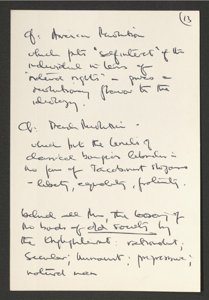 13
Cf: American Revolution
which puts "self-interest" of the
individual in terms of
"natural rights" – gives a
revolutionary flavour to the
ideology.
Cf. French Revolution –
which put the levels of
classical bourgeois liberalism in
the form of Jacobinist slogans
– liberty, equality, fraternity.
Behind all this, the
the bonds of old society by
the Enlightenment: rationalist;
Secular; humanist; progressive;
natural man